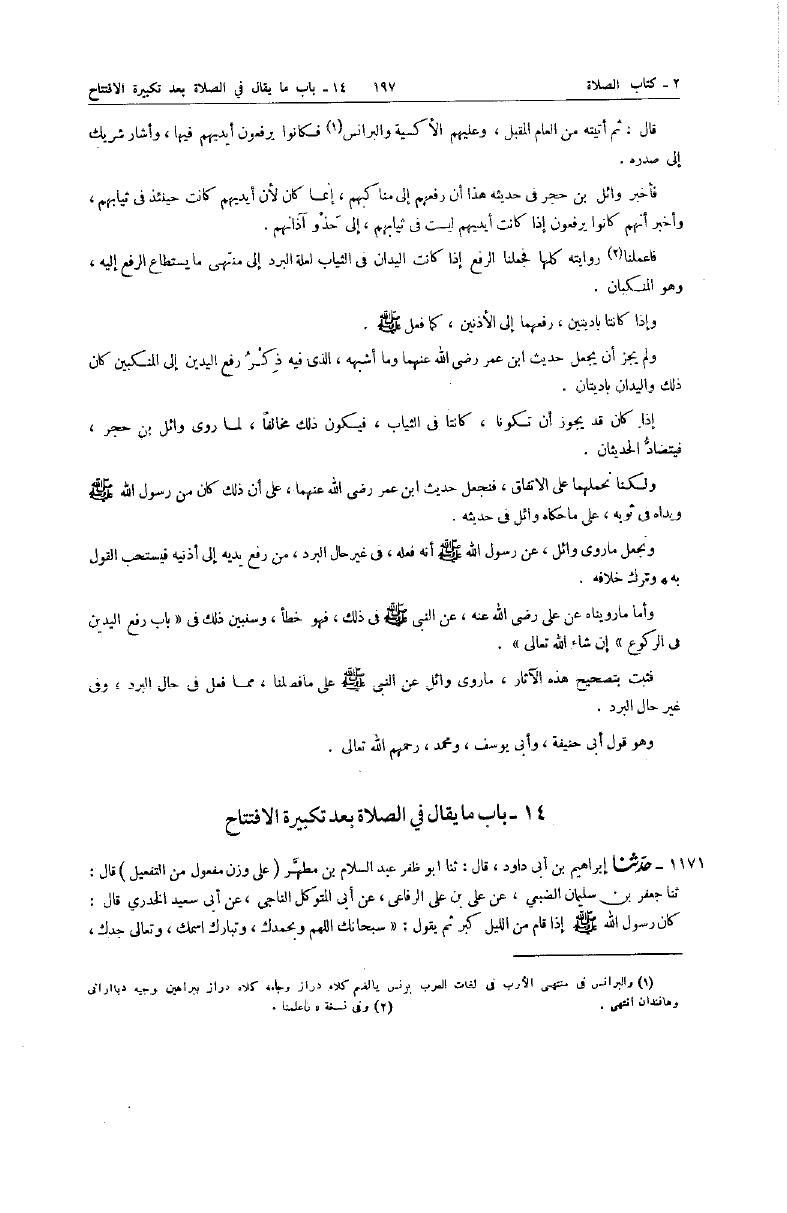 ٢ - كتاب الصلاة ١٩٧ ١٤ - باب ما يقال في الصلاة بعد تكبيرة الافتتاح
قال : ثم أتيته من العام المقبل ، وعليهم الأكسية والبرانس(١) فكانوا يرفعون أيديهم فيها ، وأشار شريك
إلى صدره .
فأخبر وائل بن حجر فى حديثه هذا أن رفعهم إلى مناكبهم ، إنما كان لأن أيديهم كانت حينئذ فى ثيابهم ،
وأخبر أنهم كانوا يرفعون إذا كانت أيديهم ليست فى ثيابهم ، إلى حَذْو آذانهم .
فاعملنا(٢) روايته كلها فجعلنا الرفع إذا كانت اليدان فى الثياب لعلة البرد إلى منتهى ما يستطاع الرفع إليه ،
وهو المنكبان .
وإذا كانتا باديتين ، رفعهما إلى الأذنين ، كما فعل ﷺ .
ولم يجز أن يجعل حديث ابن عمر رضى الله عنهما وما أشبهه ، الذى فيه ذِكْرُ رفع اليدين إلى المنكبين كان
ذلك واليدان باديتان .
إذا كان قد يجوز أن تكونا ، كانتا فى الثياب ، فيكون ذلك مخالفاً ، لما روى وائل بن حجر ،
فيتضادُّ الحديثان .
ولكنا نحملهما على الاتفاق ، فنجعل حديث ابن عمر رضى الله عنهما ، على أن ذلك كان من رسول الله ﷺ
ويداه فى ثوبه ، على ماحكاه وائل فى حديثه .
ونجعل ماروى وائل ، عن رسول الله ﷺ أنه فعله ، فى غير حال البرد ، من رفع يديه إلى أذنيه فيستحب القول
به ، وترك خلافه .
وأما مارويناه عن على رضى الله عنه ، عن النبى ﷺ فى ذلك ، فهو خطأ ، وسنبين ذلك فى « باب رفع اليدين
فى الركوع » إن شاء الله تعالى » .
فثبت بتصحيح هذه الآثار ، ماروى وائل عن النبى ﷺ على مافصلنا ، مما فعل فى حال البرد ، وفى
غير حال البرد .
وهو قول أبى حنيفة ، وأبى يوسف ، ومحمد ، رحمهم الله تعالى .
١٤ - باب ما يقال في الصلاة بعد تكبيرة الافتتاح
١١٧١ - حَدّثنا إبراهيم بن أبى داود ، قال : ثنا ابو ظفر عبد السلام بن مطهَّر ( على وزن مفعول من التفعيل ) قال :
ثنا جعفر بن سليمان الضبعي ، عن على بن على الرفاعى ، عن أبى المتوكل الناجى ، عن أبى سعيد الخدري قال :
كان رسول الله ﷺ إذا قام من الليل كبر ثم يقول : « سبحانك اللهم وبحمدك ، وتبارك اسمك ، وتعالى جدك ،
(١) والبرانس فى منتهى الأرب فى لغات العرب برنس بالضم كلاه دراز وجامه كلاه دراز پيراهين وجبه
انتهى . (٢) وفى نسخة « فأعلمنا .